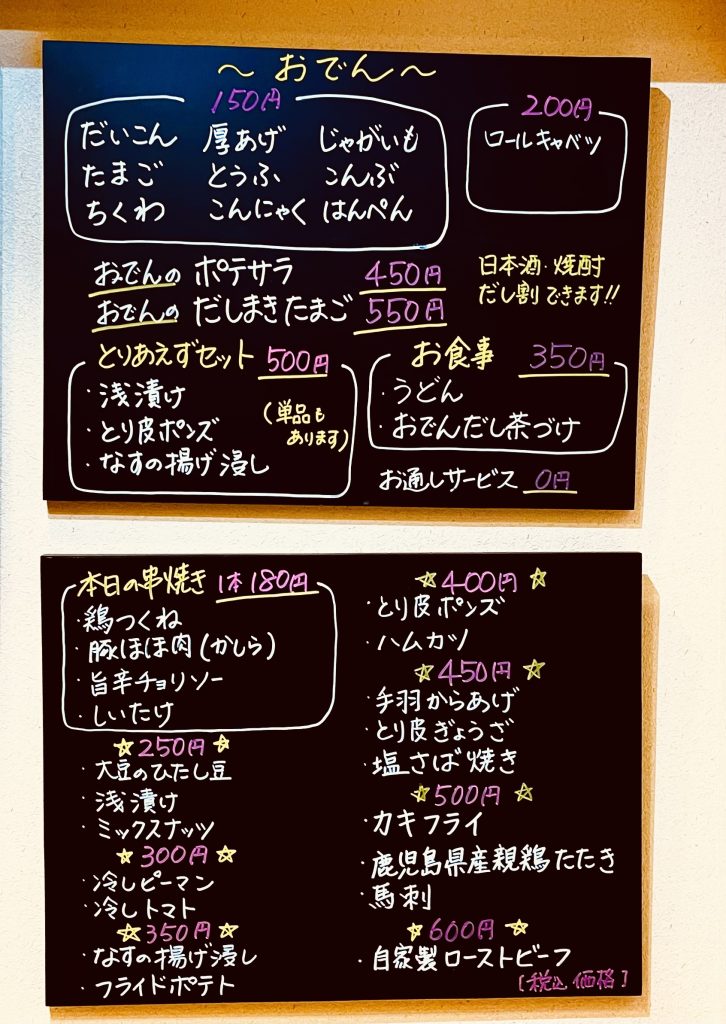 ～おでん～
150円
だいこん 厚あげ じゃがいも
たまご とうふ こんぶ
ちくわ こんにゃく はんぺん
200円
ロールキャベツ
おでんの ポテサラ 450円
おでんの だしまきたまご 550円
日本酒・焼酎
だし割できます!!
とりあえずセット 500円
・浅漬け
・とり皮ポンズ
・なすの揚げ浸し
(単品も
あります)
お食事 350円
・うどん
・おでんだし茶づけ
お通しサービス 0円
本日の串焼き 1本180円
・鶏つくね
・豚ほほ肉(かしら)
・旨辛チョリソー
・しいたけ
☆250円☆
・大豆のひたし豆
・浅漬け
・ミックスナッツ
☆300円☆
・冷しピーマン
・冷しトマト
☆350円☆
・なすの揚げ浸し
・フライドポテト
☆400円☆
・とり皮ポンズ
・ハムカツ
☆450円☆
・手羽からあげ
・とり皮ぎょうざ
・塩さば焼き
☆500円☆
・カキフライ
・鹿児島県産親鶏たたき
・馬刺
☆600円☆
・自家製ローストビーフ
[税込価格]